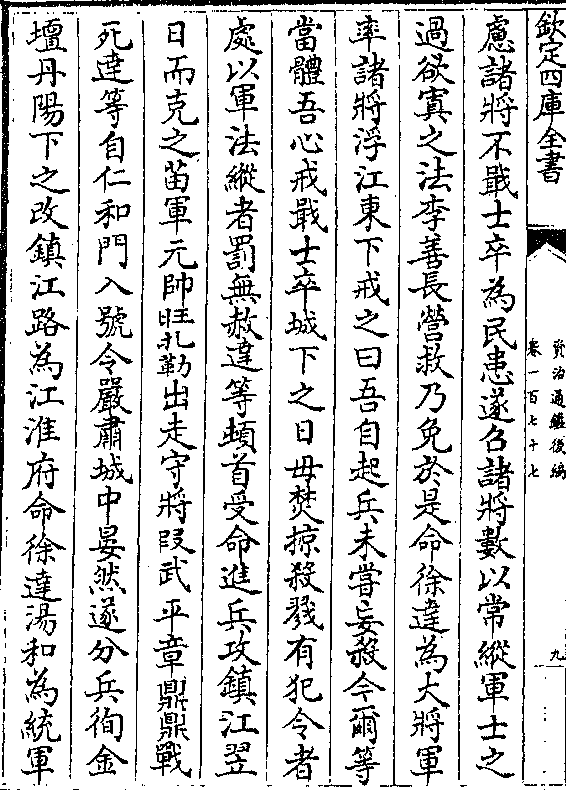 欽定四庫全書
資治通鑑後編
卷一百七十七
九
慮諸將不戢士卒為民患遂召諸將數以常縱軍士之
過欲寘之法李善長營救乃免於是命徐達為大將軍
率諸將浮江東下戒之曰吾自起兵未嘗妄殺今爾等
當體吾心戒戢士卒城下之日毋焚掠殺戮有犯令者
處以軍法縱者罰無赦達等頓首受命進兵攻鎮江翌
日而克之苗軍元帥旺扎勒出走守將段武平章鼎鼎戰
死達等自仁和門入號令嚴肅城中晏然遂分兵徇金
壇丹陽下之改鎮江路為江淮府命徐達湯和為統軍